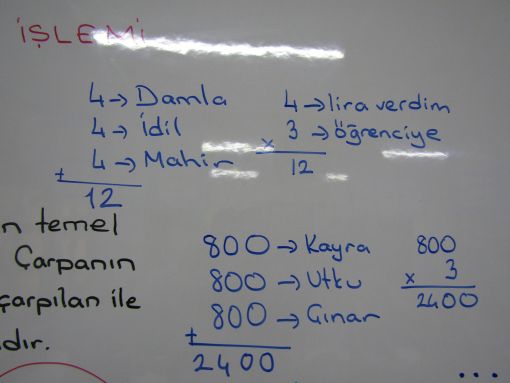 İŞLEMİ
4 → Damla
4 → İdil
4 → Mahir
+
12
4 → lira verdim
x 3 → öğrenciye
12
n temel
Çarpanın
çarpılan ile
dır.
800 → Kayra
800 → Utku
800 → Çınar
+
2400
800
x 3
2400
...